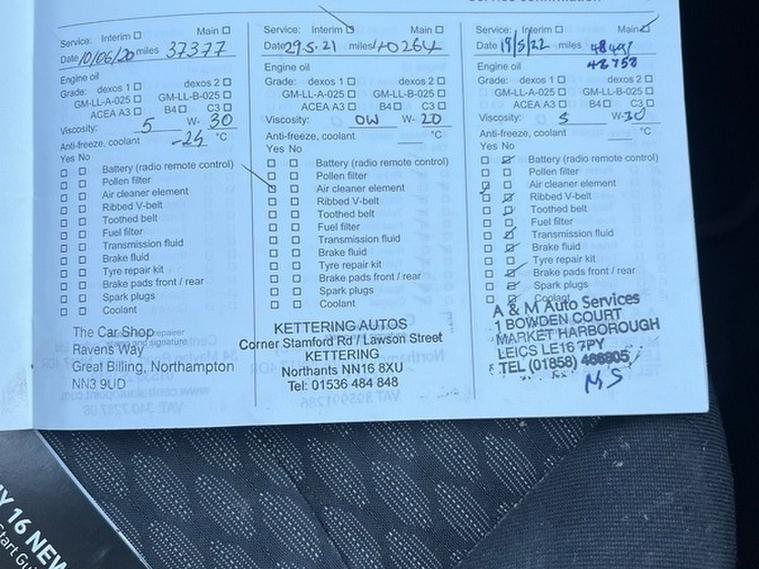 Service: Interim Main
Date 10/06/20 miles 37377
Engine oil
Grade: dexos 1 dexos 2
GM-LL-A-025 GM-LL-B-025
ACEA A3 B4 C3
Viscosity: 5 W- 30
Anti-freeze, coolant -24 °C
Yes No
Battery (radio remote control)
Pollen filter
Air cleaner element
Ribbed V-belt
Toothed belt
Fuel filter
Transmission fluid
Brake fluid
Tyre repair kit
Brake pads front / rear
Spark plugs
Coolant
The Car Shop
Ravens Way
Great Billing, Northampton
NN3 9UD
Service: Interim Main
Date 29.5.21 miles
Engine oil
Grade: dexos 1 dexos 2
GM-LL-A-025 GM-LL-B-025
ACEA A3 B4 C3
Viscosity: 0W W- 20
Anti-freeze, coolant °C
Yes No
Battery (radio remote control)
Pollen filter
Air cleaner element
Ribbed V-belt
Toothed belt
Fuel filter
Transmission fluid
Brake fluid
Tyre repair kit
Brake pads front / rear
Spark plugs
Coolant
KETTERING AUTOS
Corner Stamford Rd / Lawson Street
KETTERING
Northants NN16 8XU
Tel: 01536 484 848
Service: Interim Main
Date 19/5/22 miles
48758
Engine oil
Grade: dexos 1 dexos 2
GM-LL-A-025 GM-LL-B-025
ACEA A3 B4 C3
Viscosity: 5 W-30
Anti-freeze, coolant °C
Yes No
Battery (radio remote control)
Pollen filter
Air cleaner element
Ribbed V-belt
Toothed belt
Fuel filter
Transmission fluid
Brake fluid
Tyre repair kit
Brake pads front / rear
Spark plugs
Coolant
A & M Auto Services
1 BOWDEN COURT
MARKET HARBOROUGH
LEICS LE16 7PY
TEL (01858)
MS
16 NEW
Start